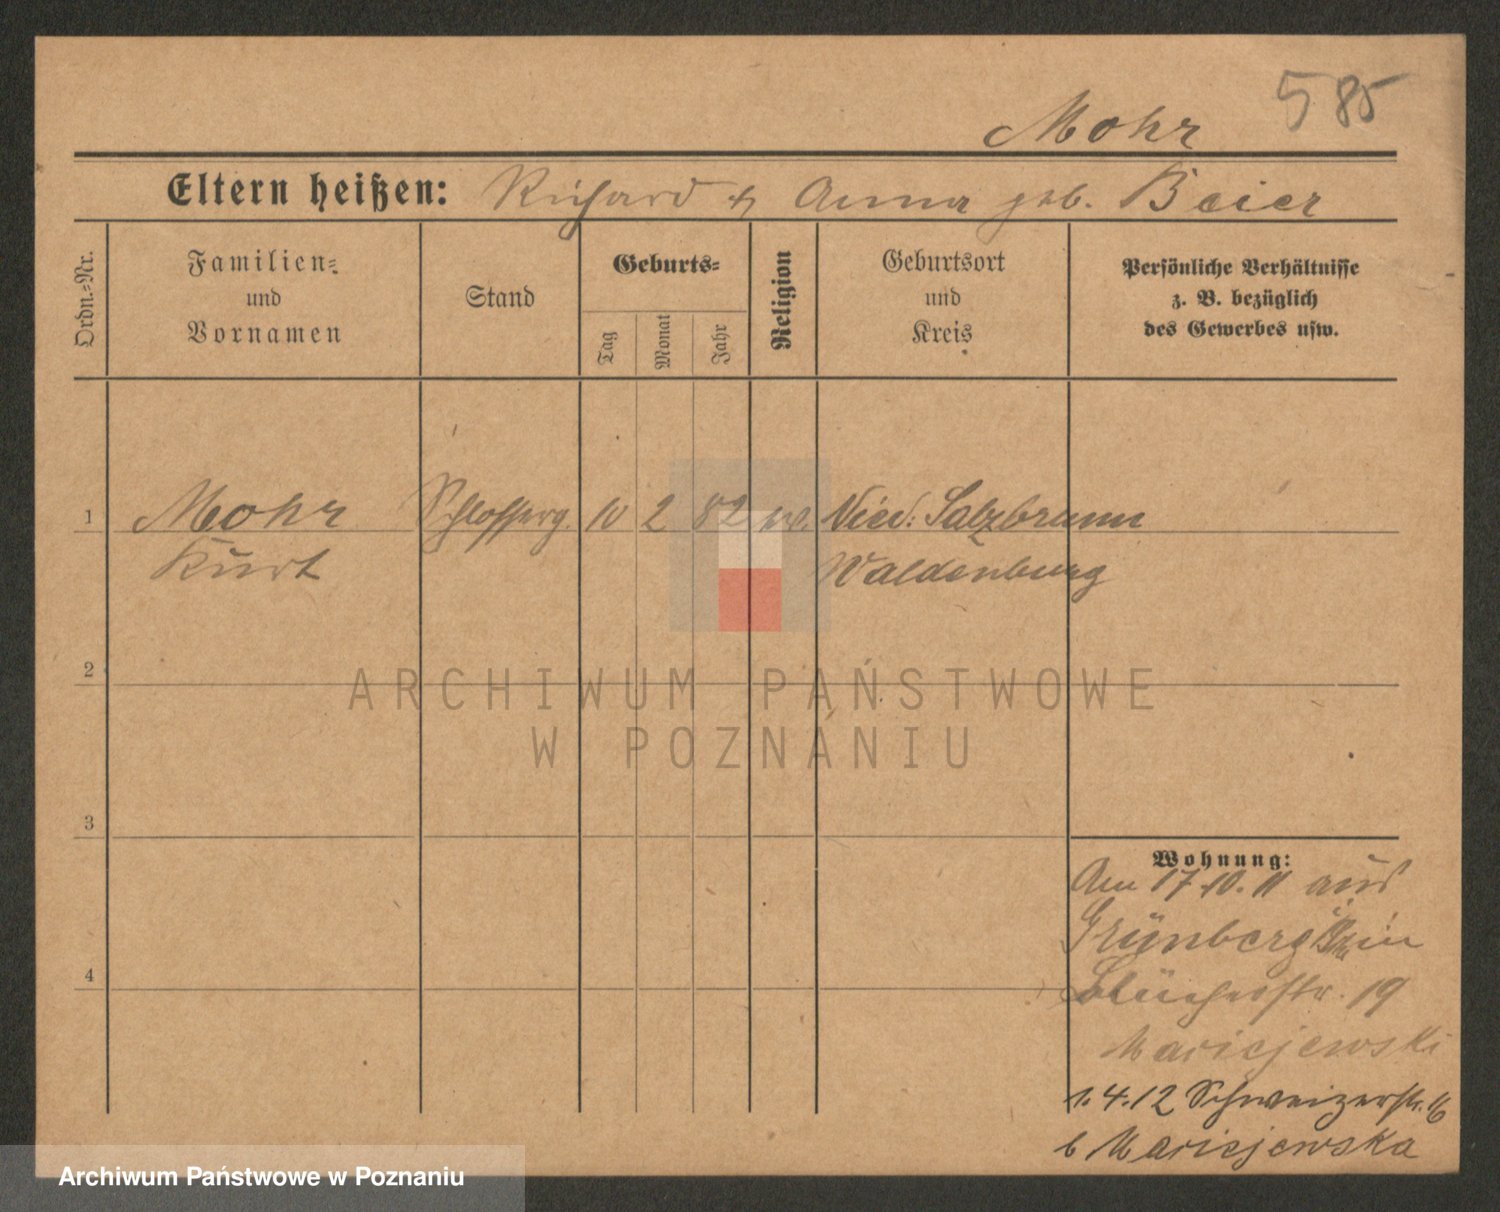 585
Mohr
Eltern heißen: Richard & Anna geb. Beier
Ordn.=Nr.
Familien=
und
Vornamen
Stand
Geburts=
Tag
Monat
Jahr
Religion
Geburtsort
und
Kreis
Persönliche Verhältnisse
z. B. bezüglich
des Gewerbes usw.
1 Mohr Schlosserg. 10 2 82 Nied: Salzbrunn
Kurt Waldenburg
2
3
4
Wohnung:
Am 17.10.11 aus
Grünberg in
Blücherstr. 19
Maricjewski
1.4.12 Schweizerstr. 16
b Maricjewska
ARCHIWUM PAŃSTWOWE
W POZNANIU
Archiwum Państwowe w Poznaniu